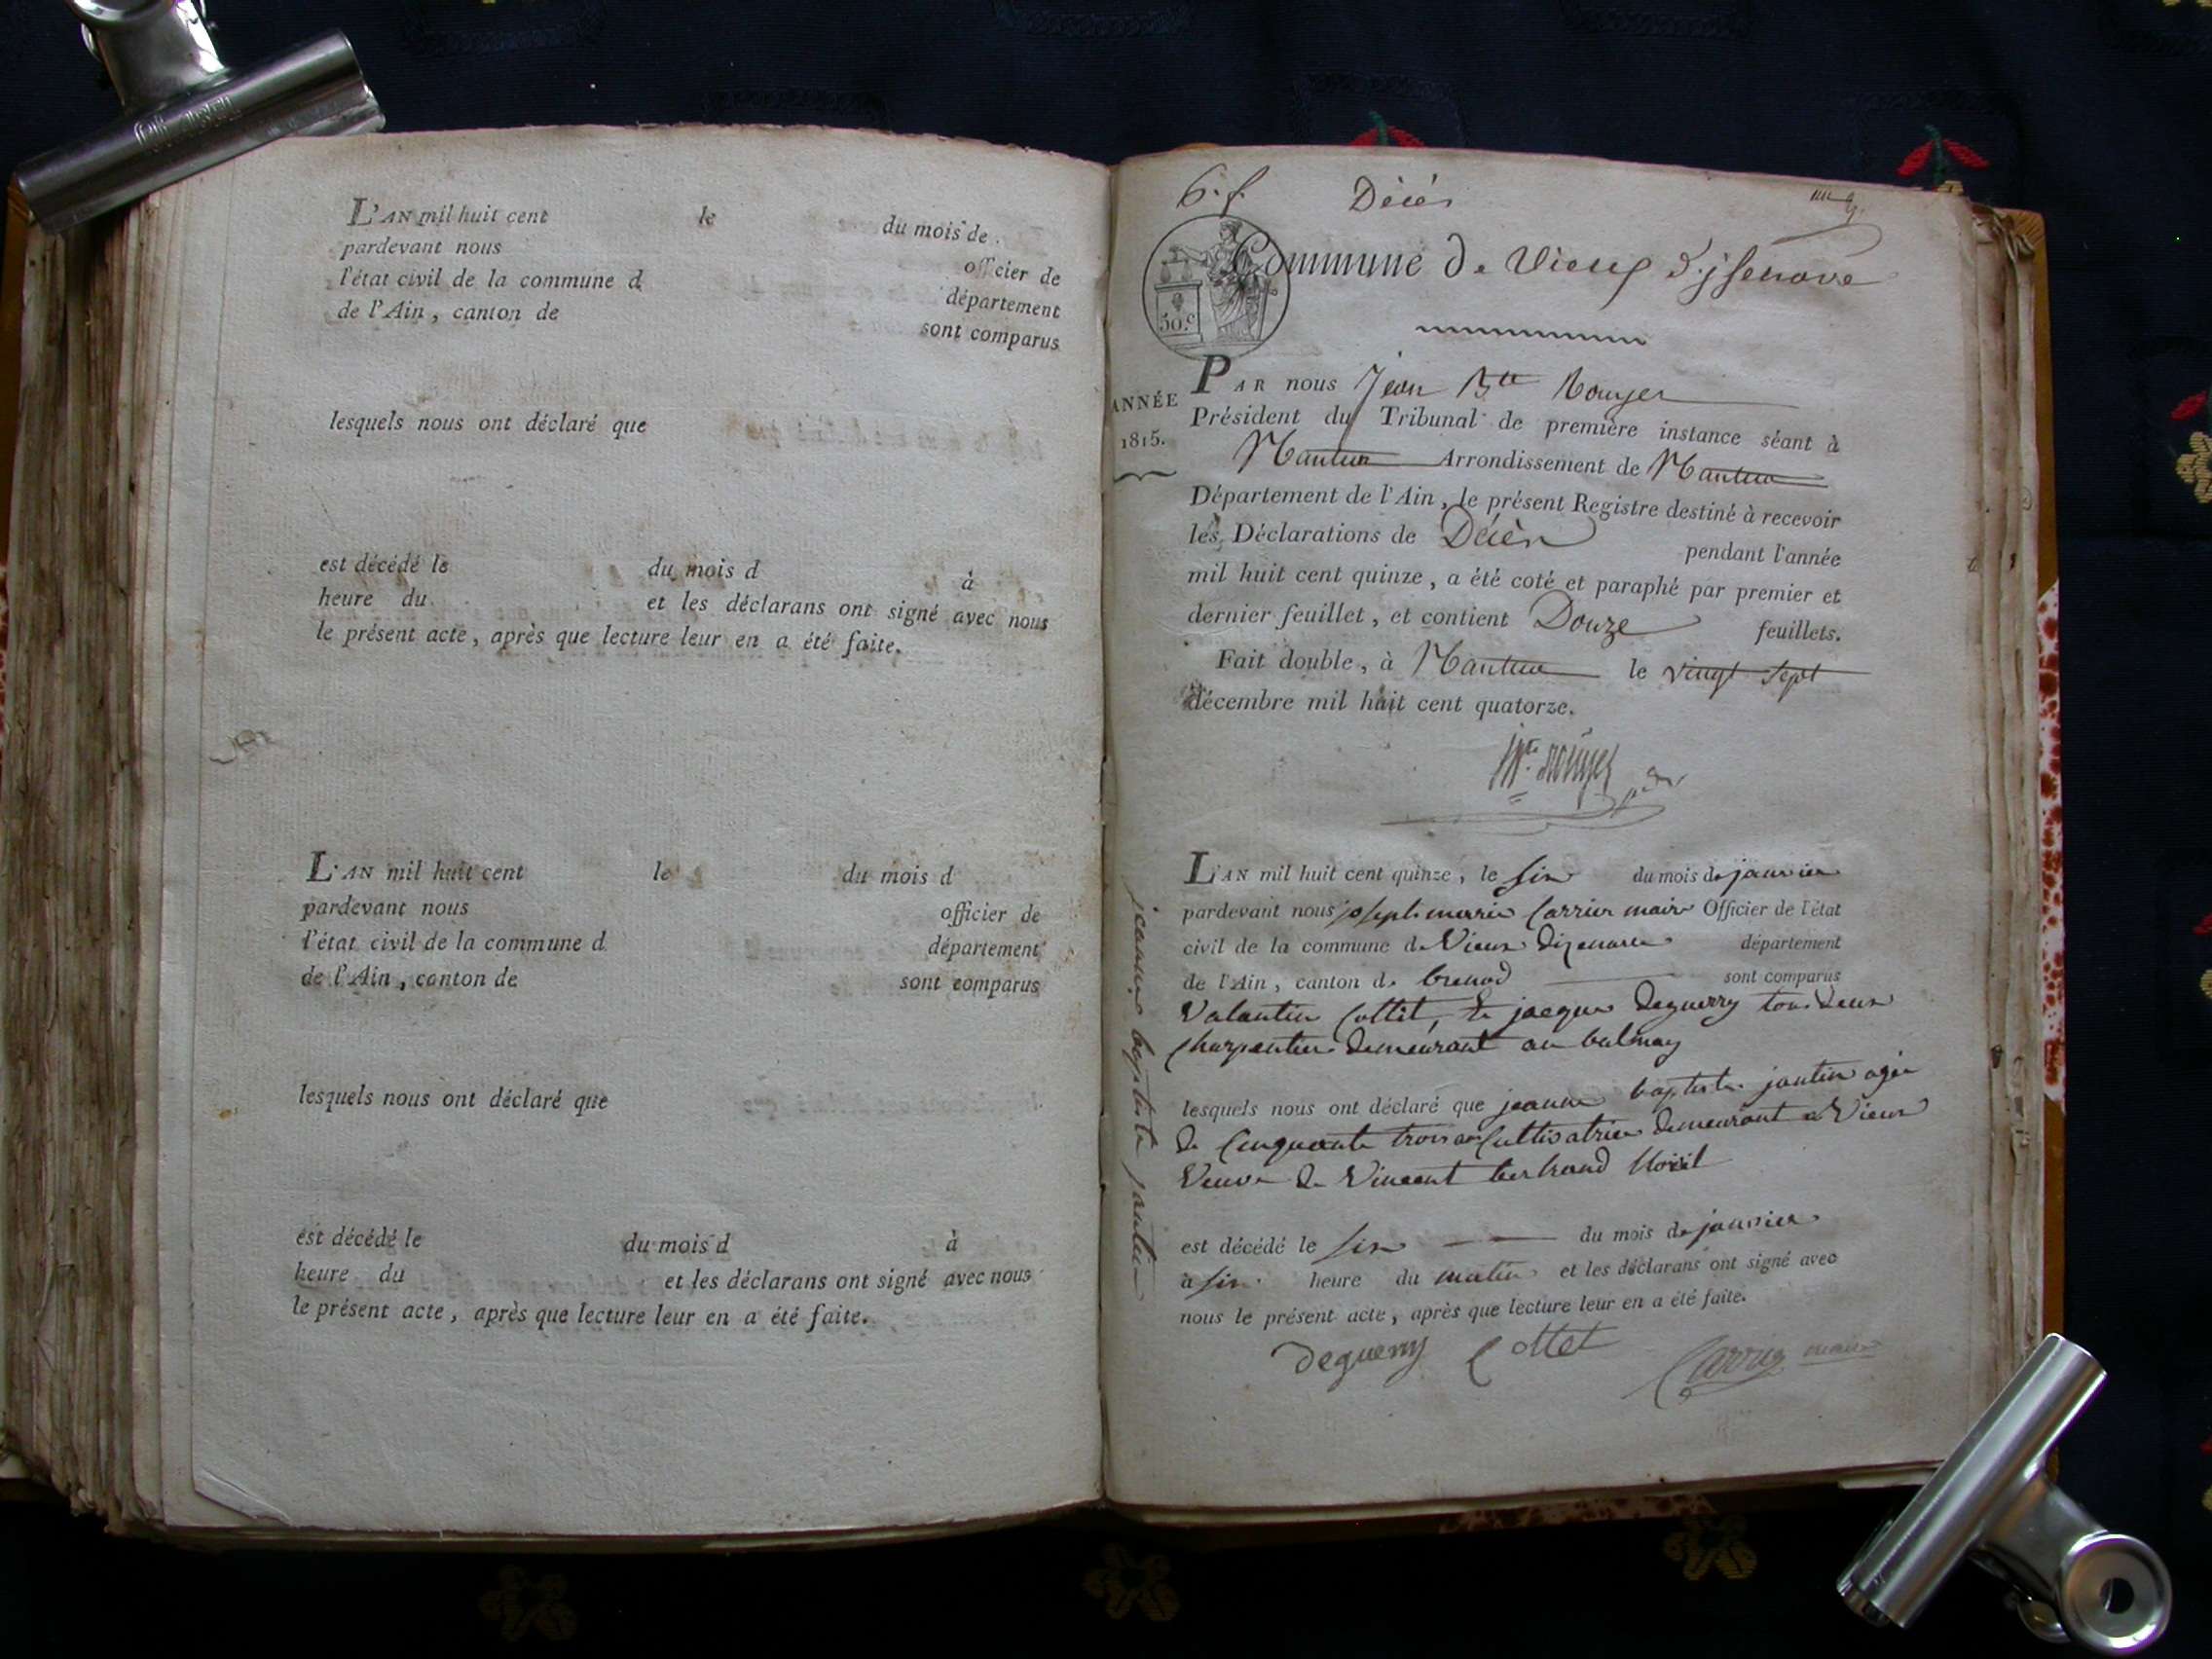 L'AN mil huit cent le du mois de
pardevant nous officier de
l'état civil de la commune d département
de l'Ain, canton de sont comparus
lesquels nous ont déclaré que
est décédé le du mois d à
heure du et les déclarans ont signé avec nous
le présent acte, après que lecture leur en a été faite.
L'AN mil huit cent le du mois d
pardevant nous officier de
l'état civil de la commune d département
de l'Ain, canton de sont comparus
lesquels nous ont déclaré que
est décédé le du mois d à
heure du et les déclarans ont signé avec nous
le présent acte, après que lecture leur en a été faite.
6.f Décés
Commune de Vieux d'jsenave
50.c
ANNÉE
1815.
PAR nous Jean Bte Rouyer
Président du Tribunal de première instance séant à
Nantua Arrondissement de Nantua
Département de l'Ain, le présent Registre destiné à recevoir
les Déclarations de Décès pendant l'année
mil huit cent quinze, a été coté et paraphé par premier et
dernier feuillet, et contient Douze feuillets.
Fait double, à Nantua le vingt sept
décembre mil huit cent quatorze.
jeanne baptiste jantin
L'AN mil huit cent quinze, le six du mois de janvier
pardevant nous joseph marie Carrier maire Officier de l'état
civil de la commune de Vieux dizenave département
de l'Ain, canton de brenod sont comparus
Valantin Cottet, et jacque Deguerry tous deux
Charpentier demeurant au balmay
lesquels nous ont déclaré que jeanne baptiste jantin agée
de Cinquante trois ans Cultivatrice demeurant a Vieux
Veuve de Vincent bertrand
est décédé le six du mois de janvier
à six heure du matin et les déclarans ont signé avec
nous le présent acte, après que lecture leur en a été faite.
Deguerry Cottet Carrier maire